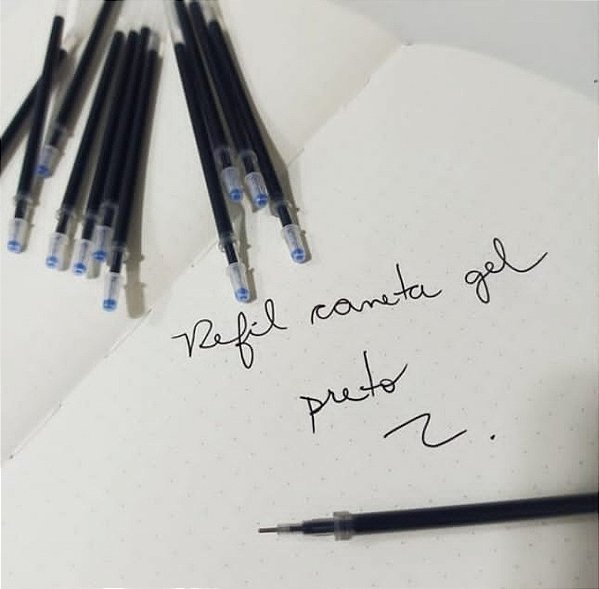 Refil caneta gel
preto